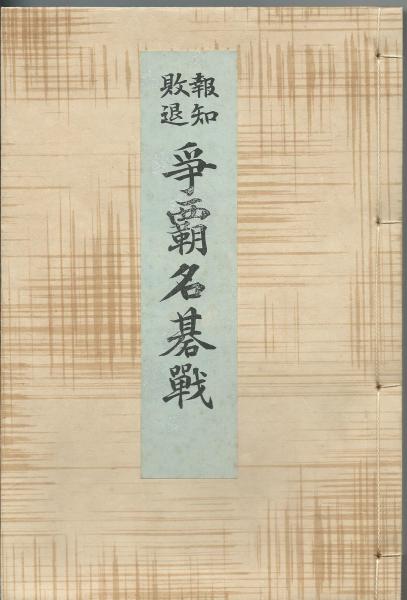 報知
敗退
爭覇名碁戰